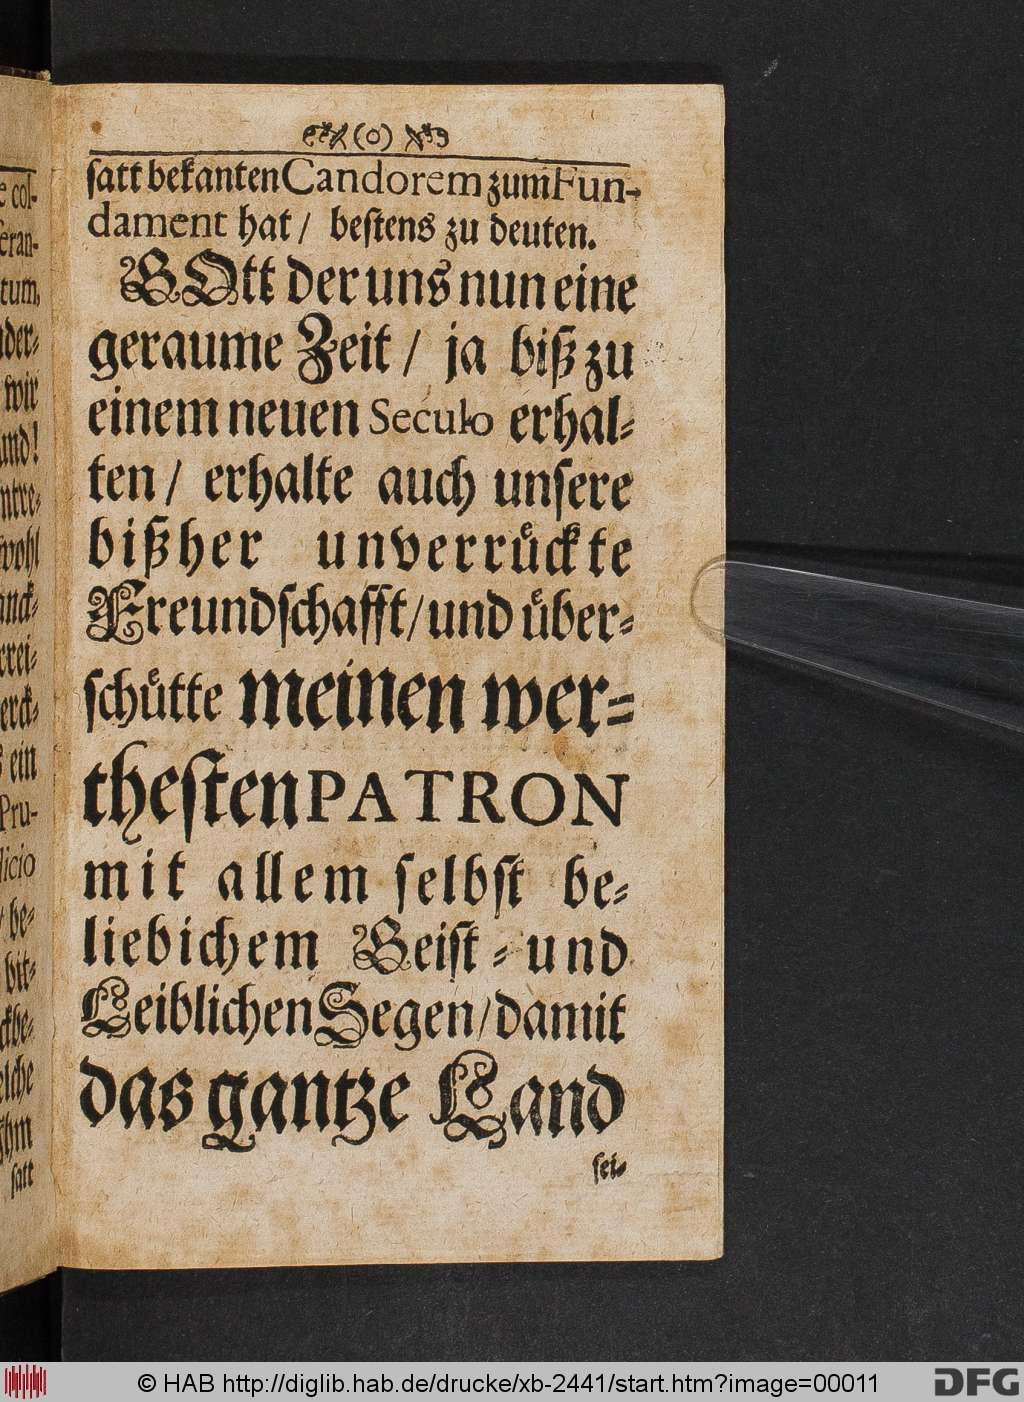 (o)
satt bekanten Candorem zum Fun-
dament hat / bestens zu deuten.
GOtt der uns nun eine
geraume Zeit / ja biß zu
einem neuen Seculo erhal-
ten / erhalte auch unsere
bißher unverruͤckte
Freundschafft / und uͤber-
schuͤtte meinen wer-
thesten PATRON
mit allem selbst be-
liebichem Geist- und
Leiblichen Segen / damit
das gantze Land
sei-
e col-
tum,
wir
und!
ntre-
wohl
anck-
rrei-
erck-
ein
Pru-
licio
/ be-
bit-
ckbe-
elche
Ihm
satt
© HAB http://diglib.hab.de/drucke/xb-2441/start.htm?image=00011
DFG